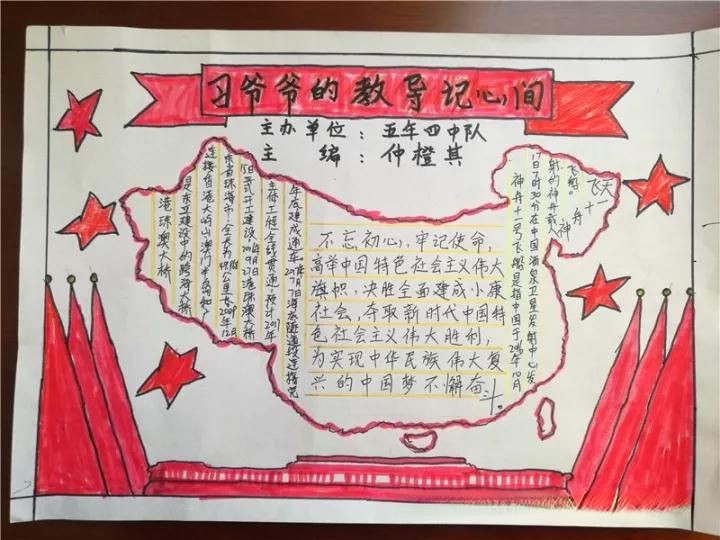 习爷爷的教导记心间
主办单位：五年四中队
主编：仲橙其
港珠澳大桥
是东亚建设中的跨海大桥
连接香港大屿山、澳门半岛和广
东省珠海市，全长为公里，2009年12
15日正式开工建设，9月27日港珠澳大桥
主体工程全线贯通，预计2017
年底建成通车。2017年7月7日海底隧道段连接完
不忘初心，牢记使命，
高举中国特色社会主义伟大
旗帜，决胜全面建成小康
社会，夺取新时代中国特
色社会主义伟大胜利，
为实现中华民族伟大复
兴的中国梦不懈奋
斗。
飞天
神舟十一
飞船。
射的神舟载人
17日7时30分在中国酒泉卫星发射中心发
神舟十一号飞船是指中国于2016年10月